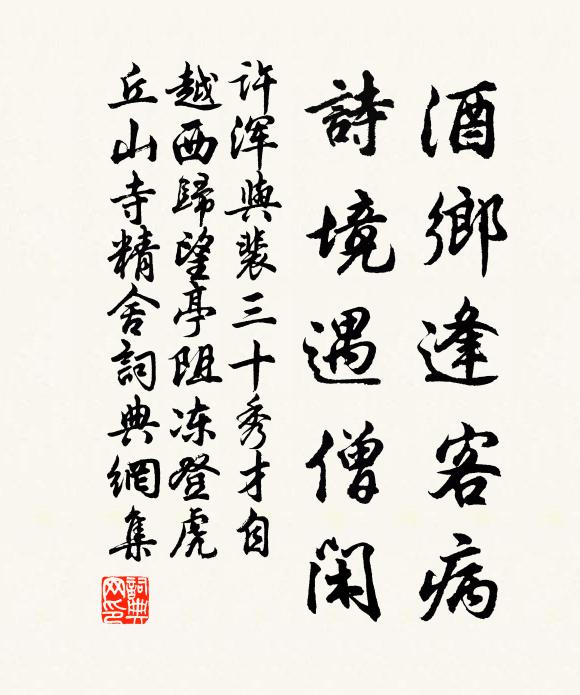 酒鄉逢客病
詩境遇僧閑
许浑與裴三十秀才自
越西歸望亭阻冻登虎
丘山寺精舍詞典網集
詞典网印